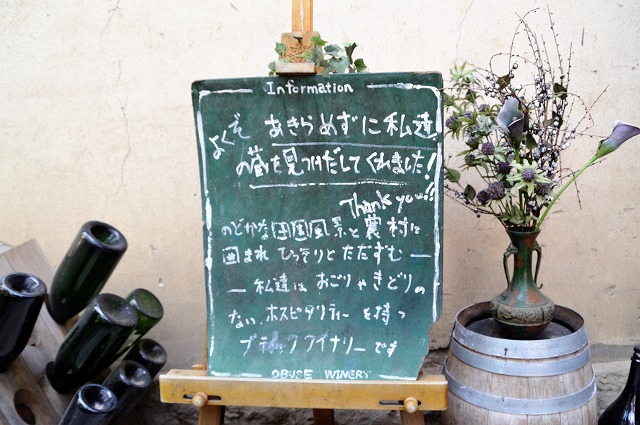 Information
よくぞ あきらめずに私達
の蔵を見つけだしてくれました!
Thank you!!
のどかな田園風景と農村に
囲まれ ひっそりとたたずむ
私達は おごりやきどりの
ない、ホスピタリティーを持つ
ブティックワイナリーです
OBUSE WINERY